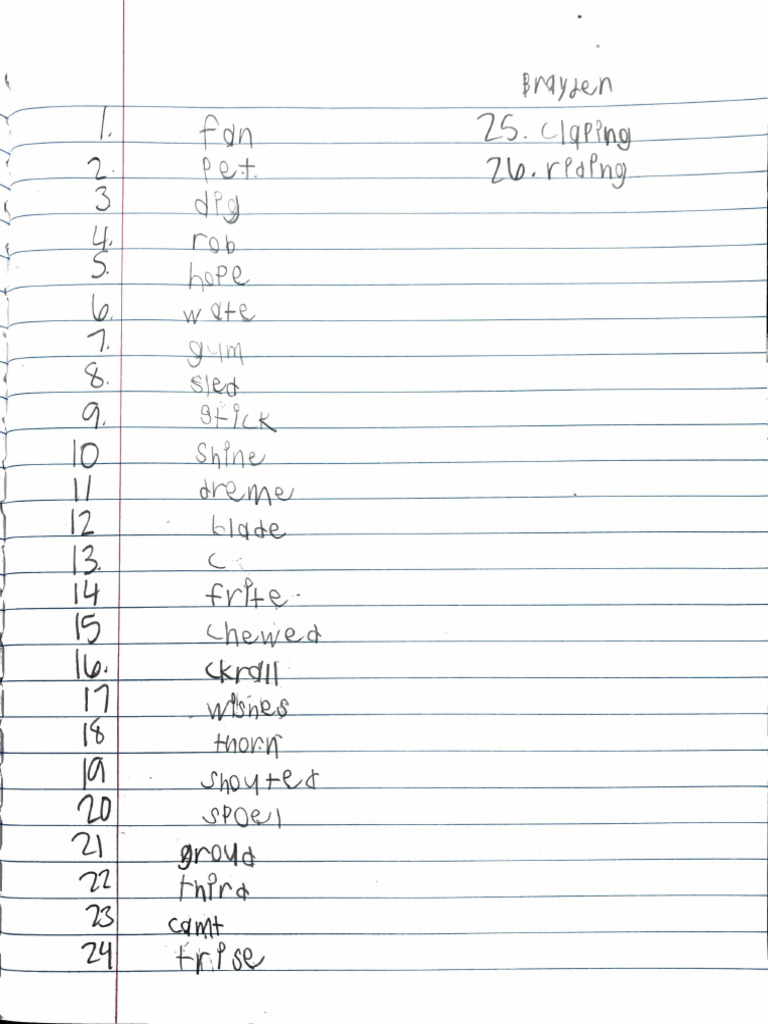 Brayden
1. fan
2. pet.
3 dig
4. rob
5. hope
6. wate
7. gum
8. sled
9. stick
10 shine
11 dreme
12 blade
13. c
14 frite
15 chewed
16. ckrall
17 wishes
18 thorn
19 shouted
20 spoel
21 groud
22 third
23 camt
24 trise
25. claping
26. riding